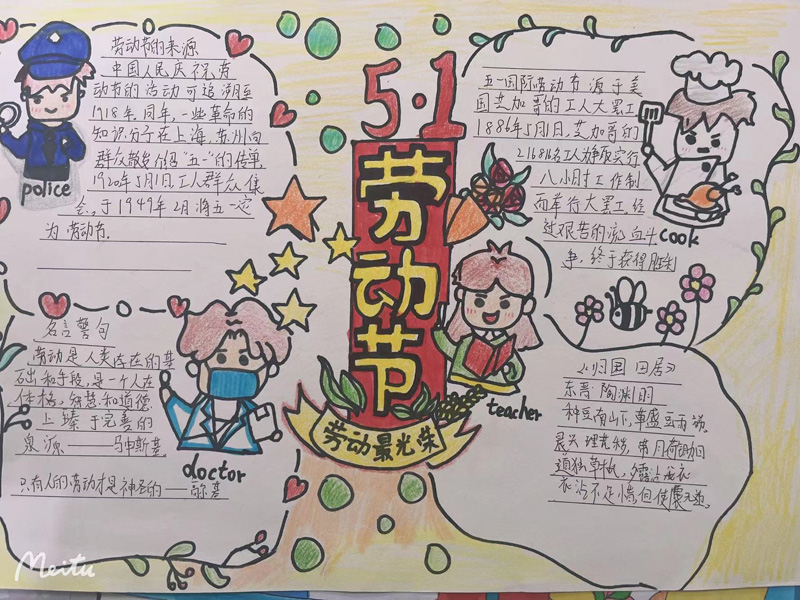 劳动节的来源
中国人民庆祝劳
动节的活动可追溯至
1918年.同年,一些革命的
知识分子在上海,苏州向
群众散发介绍"五一"的传单
1920年5月1日工人群众集
会。于1949年2月将五一定
为劳动节.
police
5·1
劳动节
劳动最光荣
五一国际劳动节源于美
国芝加哥的工人大罢工
1886年5月1日,芝加哥的
21.6816名工人为争取实行
八小时工作制
而举行大罢工,经
过艰苦的流血斗
争,终于获得胜利
cook
名言警句
劳动是人类存在的基
础和手段,是一个人在
体格,智慧和道德
上臻于完善的
泉源——马申斯基
只有人的劳动才是神圣的——
doctor
teacher
《归园田居》
东晋 陶渊明
种豆南山下,草盛豆苗稀.
晨兴理荒秽,带月荷锄归
道狭草木长,夕露沾我衣
衣沾不足惜但使愿无违。
Meitu